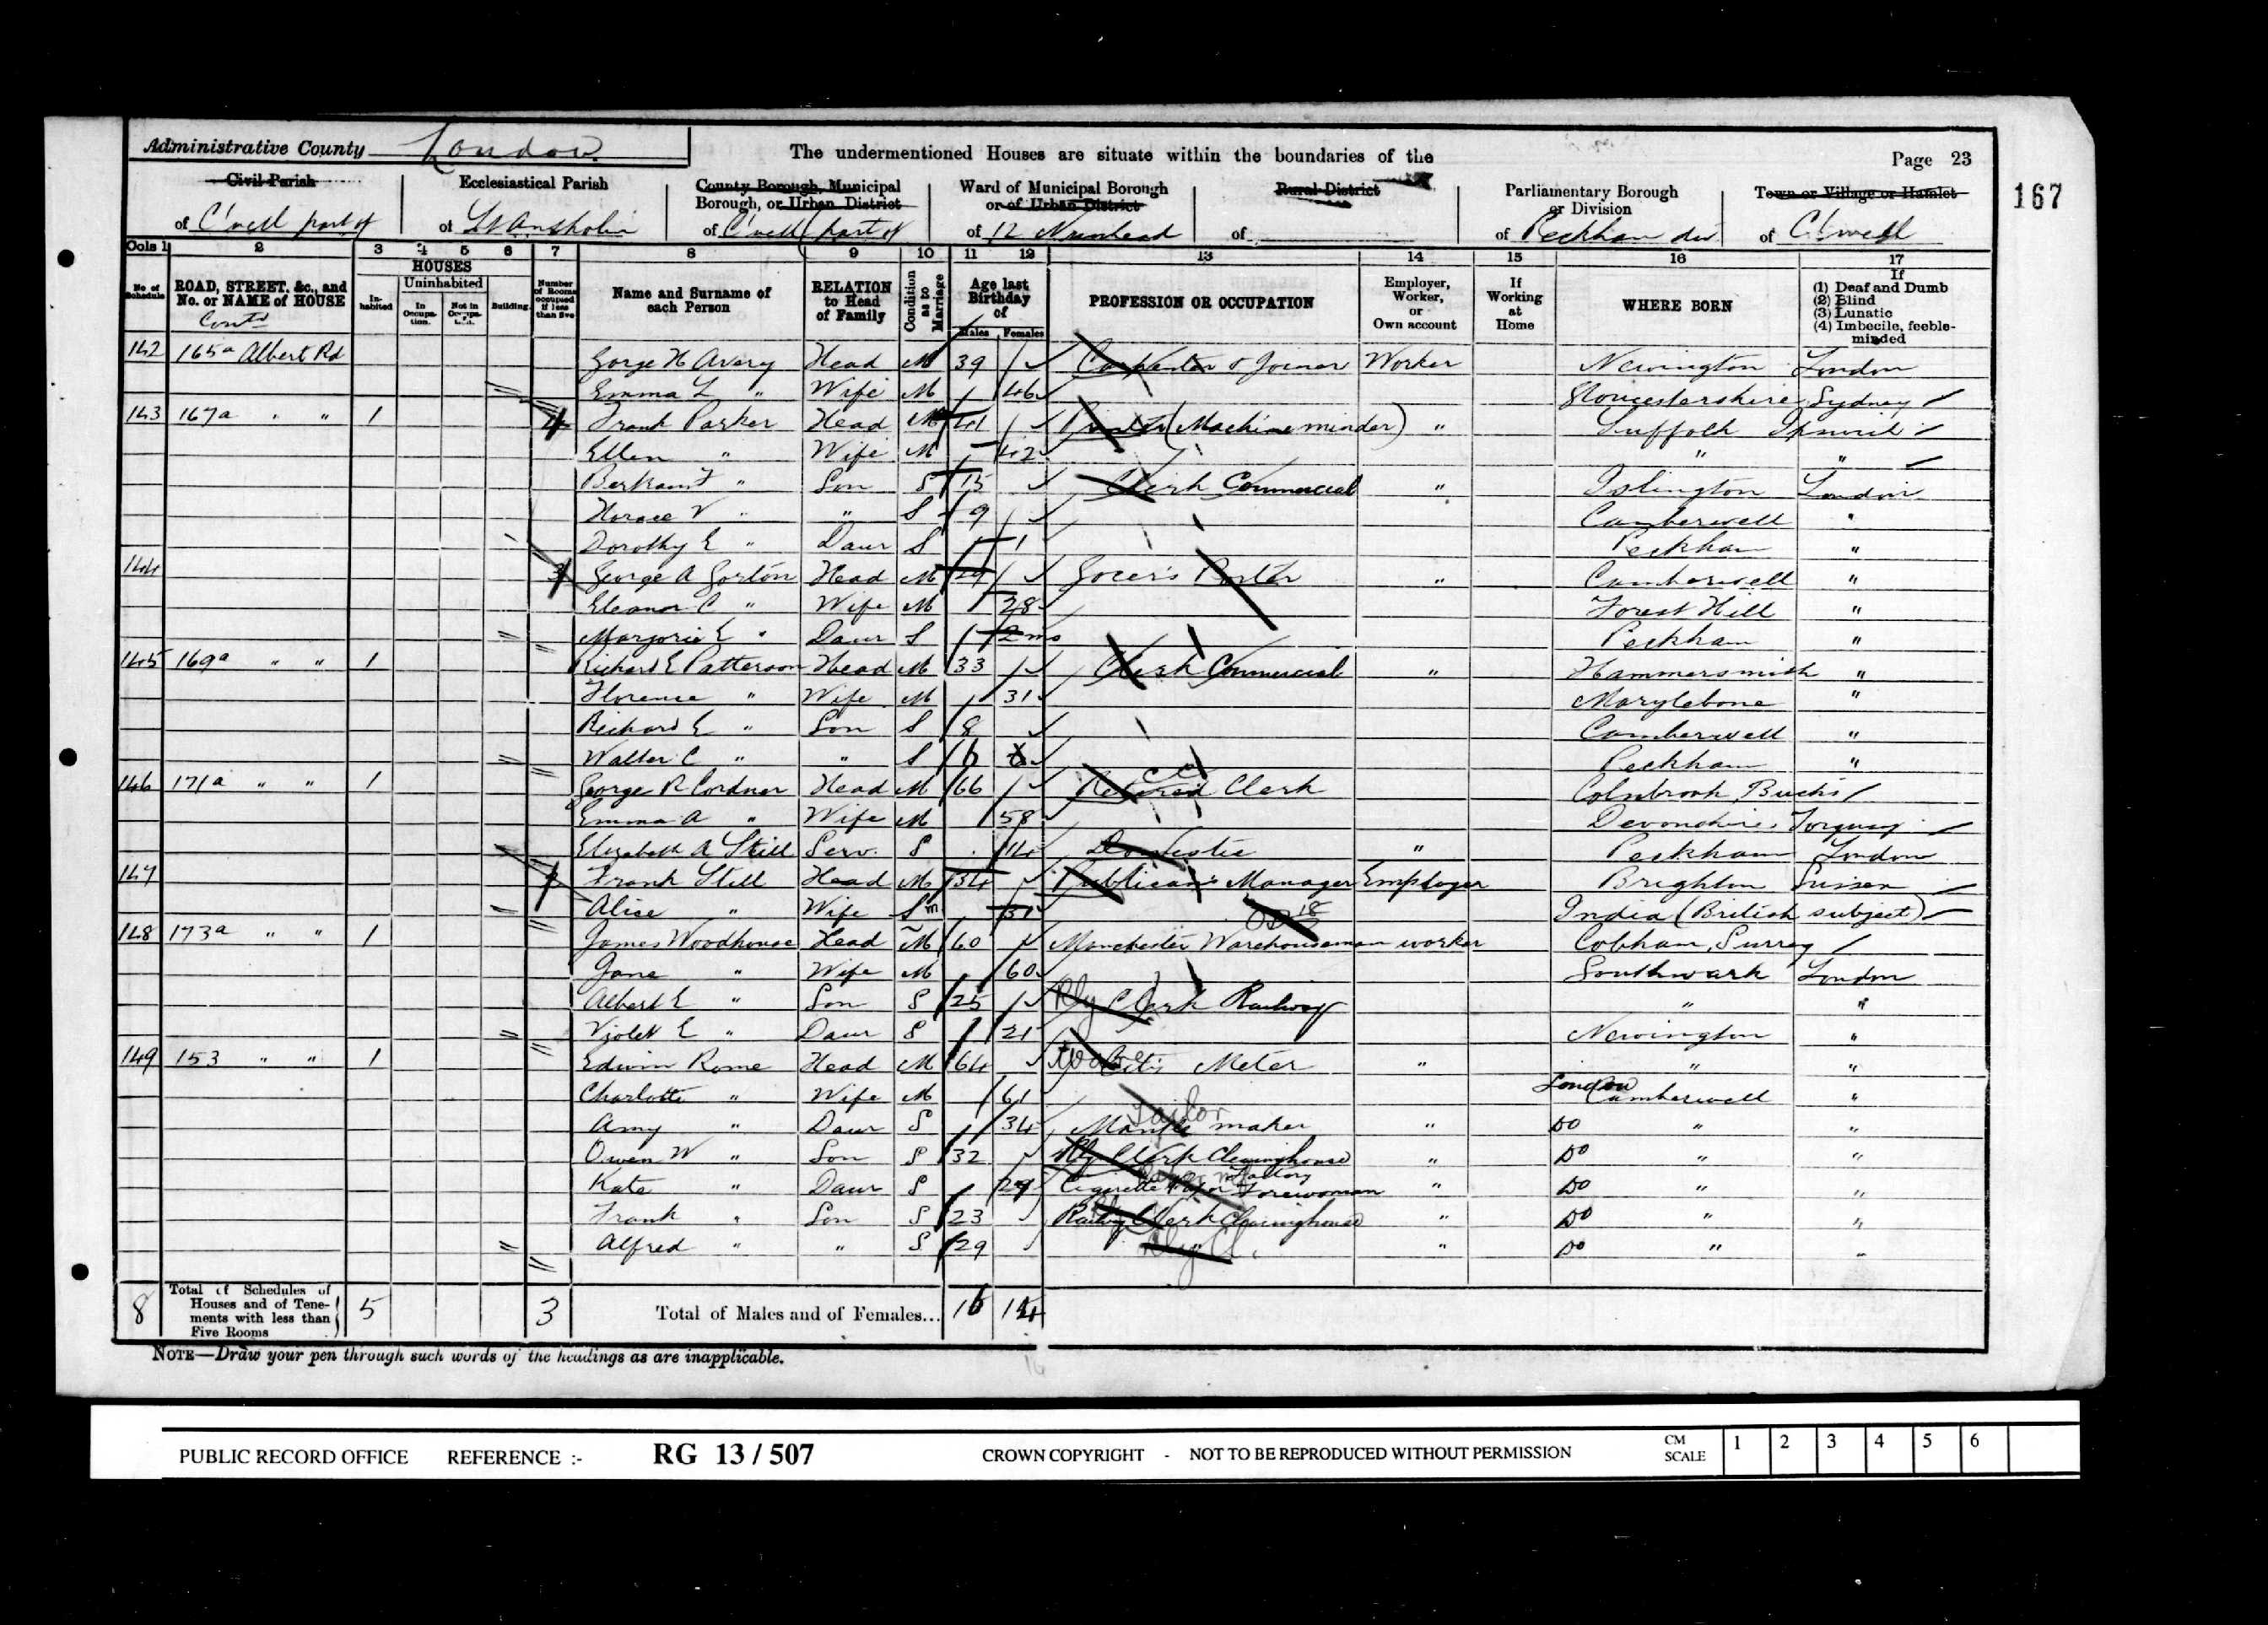 Administrative County London
The undermentioned Houses are situate within the boundaries of the
Page 23
167
Civil Parish
of C'well part of
Ecclesiastical Parish
of St
County Borough, Municipal Borough, or Urban District
of C'well (part of
Ward of Municipal Borough or of Urban District
of 12 Nunhead
Rural District
of
Parliamentary Borough or Division
of Peckham div
Town or Village or Hamlet
of C'well
Cols 1 2 3 4 5 6 7 8 9 10 11 12 13 14 15 16 17
No. of Schedule
ROAD, STREET, &c., and No. or NAME of HOUSE
Contd
HOUSES
In-habited
Uninhabited
In Occupa-tion.
Not in Occupa-tion.
Building.
Number of Rooms occupied if less than five
Name and Surname of each Person
RELATION to Head of Family
Condition as to Marriage
Age last Birthday of
Males Females
PROFESSION OR OCCUPATION
Employer, Worker, or Own account
If Working at Home
WHERE BORN
If
(1) Deaf and Dumb
(2) Blind
(3) Lunatic
(4) Imbecile, feeble-minded
142 165a Albert Rd Gorge H Avery Head M 39 Carpenter & Joiner Worker Newington London
Emma L " Wife M 46 Gloucestershire Sydney
143 167a " " 1 4 Frank Parker Head M 41 Printer (Machine minder) " Suffolk Ipswich
Ellen " Wife M 42 " "
Bertram F " Son S 15 Clerk Commercial " Islington London
Horace V " " S 9 Camberwell "
Dorothy E " Daur S 1 Peckham "
144 3 George A Gorton Head M 29 Grocer's Porter " Camberwell "
Eleanor C " Wife M 28 Forest Hill "
Marjorie E " Daur S 2 mos Peckham "
145 169a " " 1 Richard E Patterson Head M 33 Clerk Commercial " Hammersmith "
Florence " Wife M 31 Marylebone "
Richard E " Son S 8 Camberwell "
Walter C " " S 6 Peckham "
146 171a " " 1 George R Cordner Head M 66 Retired Clerk Colnbrook, Bucks
Emma A " Wife M 58 Devonshire, Torquay
Elizabeth A Still Serv. S 14 Domestic " Peckham London
147 Frank Still Head M 34 Publican's Manager Employer Brighton Sussex
Alice " Wife S m 31 India (British subject)
148 173a " " 1 James Woodhouse Head M 60 Manchester Warehouseman worker Cobham, Surrey
Jane " Wife M 60 Southwark London
Albert E " Son S 25 Rly Clerk Railway " "
Violet E " Daur S 21 Newington "
149 153 " " 1 Edwin Rome Head M 64 Meter " " "
Charlotte " Wife M 61 London Camberwell "
Amy " Daur S 34 Mantle maker Tailor " Do " "
Owen W " Son S 32 Rly Clerk Clearinghouse " Do " "
Kate " Daur S 29 Cigarette Paper Factory Forewoman " Do " "
Frank " Son S 23 Railway Clerk Clearinghouse " Do " "
Alfred " " S 29 " Rly Cl. " Do " "
8 Total of Schedules of Houses and of Tene-ments with less than Five Rooms 5 3 Total of Males and of Females... 16 14
NOTE—Draw your pen through such words of the headings as are inapplicable.
PUBLIC RECORD OFFICE REFERENCE :- RG 13 / 507 CROWN COPYRIGHT - NOT TO BE REPRODUCED WITHOUT PERMISSION
CM SCALE 1 2 3 4 5 6